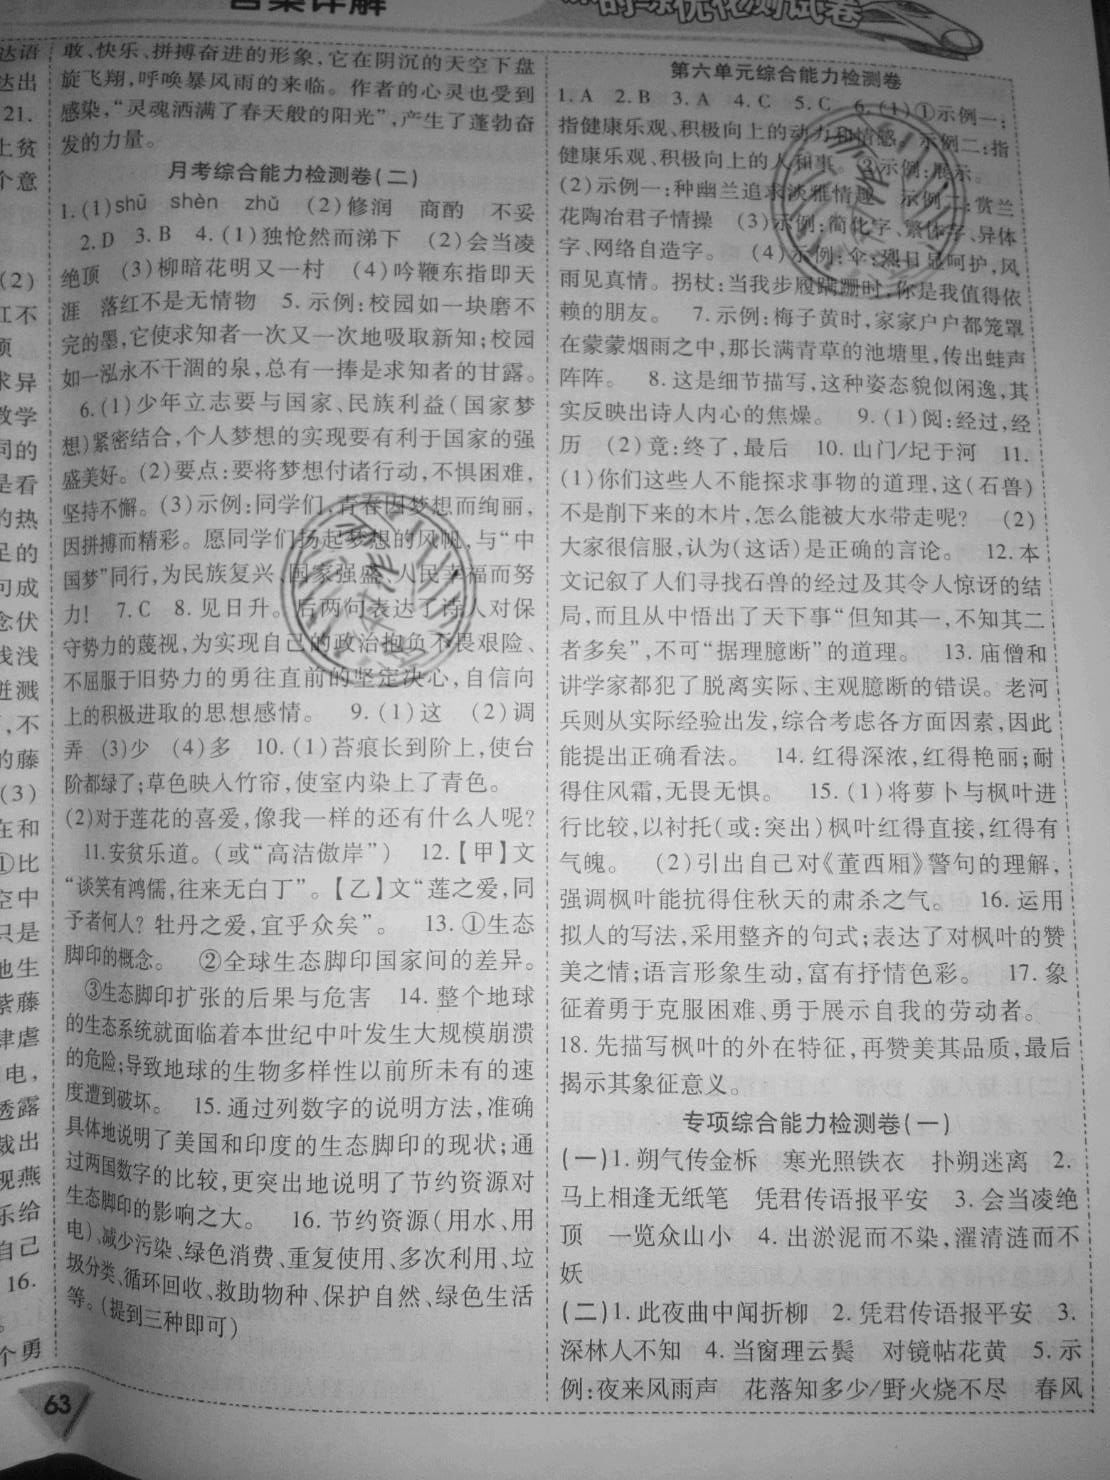 答案详解
达语
达出
21.
上贫
个意
(2)
江不
求异
教学
同的
是看
的热
足的
句成
念伏
浅浅
迸溅
,不
的藤
(3)
在和
①比
空中
只是
地生
紫藤
肆虐
电,
透露
裁出
现燕
乐给
自己
16.
个勇
敢、快乐、拼搏奋进的形象,它在阴沉的天空下盘
旋飞翔,呼唤暴风雨的来临。作者的心灵也受到
感染,“灵魂洒满了春天般的阳光”,产生了蓬勃奋
发的力量。
月考综合能力检测卷(二)
1.(1)shū shèn zhǔ (2)修润 商酌 不妥
2.D 3.B 4.(1)独怆然而涕下 (2)会当凌
绝顶 (3)柳暗花明又一村 (4)吟鞭东指即天
涯 落红不是无情物 5.示例:校园如一块磨不
完的墨,它使求知者一次又一次地吸取新知;校园
如一泓永不干涸的泉,总有一捧是求知者的甘露。
6.(1)少年立志要与国家、民族利益(国家梦
想)紧密结合,个人梦想的实现要有利于国家的强
盛美好。(2)要点:要将梦想付诸行动,不惧困难,
坚持不懈。(3)示例:同学们,青春因梦想而绚丽,
因拼搏而精彩。愿同学们扬起梦想的风帆,与“中
国梦”同行,为民族复兴、国家强盛、人民幸福而努
力! 7.C 8.见日升。后两句表达了诗人对保
守势力的蔑视,为实现自己的政治抱负不畏艰险、
不屈服于旧势力的勇往直前的坚定决心,自信向
上的积极进取的思想感情。 9.(1)这 (2)调
弄 (3)少 (4)多 10.(1)苔痕长到阶上,使台
阶都绿了;草色映入竹帘,使室内染上了青色。
(2)对于莲花的喜爱,像我一样的还有什么人呢?
11.安贫乐道。(或“高洁傲岸”) 12.【甲】文
“谈笑有鸿儒,往来无白丁”。【乙】文“莲之爱,同
予者何人? 牡丹之爱,宜乎众矣”。 13.①生态
脚印的概念。 ②全球生态脚印国家间的差异。
③生态脚印扩张的后果与危害 14.整个地球
的生态系统就面临着本世纪中叶发生大规模崩溃
的危险;导致地球的生物多样性以前所未有的速
度遭到破坏。 15.通过列数字的说明方法,准确
具体地说明了美国和印度的生态脚印的现状;通
过两国数字的比较,更突出地说明了节约资源对
生态脚印的影响之大。 16.节约资源(用水、用
电)、减少污染、绿色消费、重复使用、多次利用、垃
圾分类、循环回收、救助物种、保护自然、绿色生活
等。(提到三种即可)
63
第六单元综合能力检测卷
1.A 2.B 3.A 4.C 5.C 6.(1)①示例一:
指健康乐观、积极向上的动力和情感。示例二:指
健康乐观、积极向上的人和事。②示例:展示。
(2)示例一:种幽兰追求淡雅情趣 示例二:赏兰
花陶冶君子情操 (3)示例:简化字、繁体字、异体
字、网络自造字。 (4)示例:伞:烈日显呵护,风
雨见真情。拐杖:当我步履蹒跚时,你是我值得依
赖的朋友。 7.示例:梅子黄时,家家户户都笼罩
在蒙蒙烟雨之中,那长满青草的池塘里,传出蛙声
阵阵。 8.这是细节描写,这种姿态貌似闲逸,其
实反映出诗人内心的焦燥。 9.(1)阅:经过,经
历 (2)竟:终了,最后 10.山门/圮于河 11.
(1)你们这些人不能探求事物的道理,这(石兽)
不是削下来的木片,怎么能被大水带走呢? (2)
大家很信服,认为(这话)是正确的言论。 12.本
文记叙了人们寻找石兽的经过及其令人惊讶的结
局,而且从中悟出了天下事“但知其一,不知其二
者多矣”,不可“据理臆断”的道理。 13.庙僧和
讲学家都犯了脱离实际、主观臆断的错误。老河
兵则从实际经验出发,综合考虑各方面因素,因此
能提出正确看法。 14.红得深浓,红得艳丽;耐
得住风霜,无畏无惧。 15.(1)将萝卜与枫叶进
行比较,以衬托(或:突出)枫叶红得直接,红得有
气魄。 (2)引出自己对《董西厢》警句的理解,
强调枫叶能抗得住秋天的肃杀之气。 16.运用
拟人的写法,采用整齐的句式;表达了对枫叶的赞
美之情;语言形象生动,富有抒情色彩。 17.象
征着勇于克服困难、勇于展示自我的劳动者。
18.先描写枫叶的外在特征,再赞美其品质,最后
揭示其象征意义。
专项综合能力检测卷(一)
(一)1.朔气传金柝 寒光照铁衣 扑朔迷离 2.
马上相逢无纸笔 凭君传语报平安 3.会当凌绝
顶 一览众山小 4.出淤泥而不染,濯清涟而不
妖
(二)1.此夜曲中闻折柳 2.凭君传语报平安 3.
深林人不知 4.当窗理云鬓 对镜帖花黄 5.示
例:夜来风雨声 花落知多少/野火烧不尽 春风